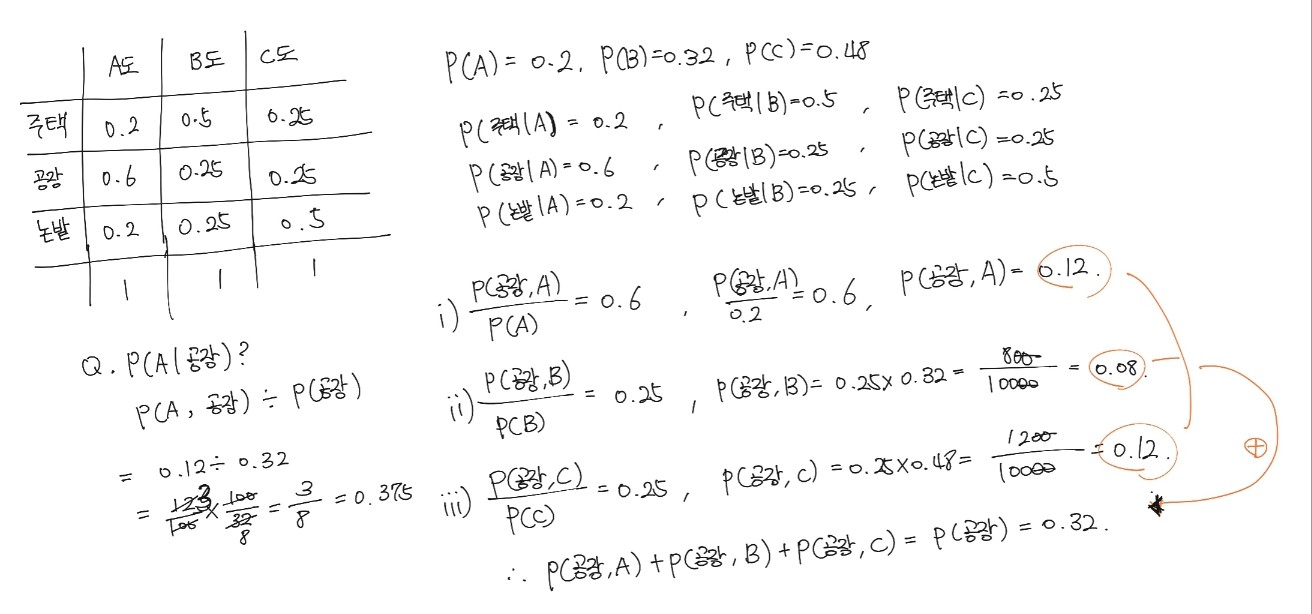 A도 B도 C도
주택 0.2 0.5 0.25
공장 0.6 0.25 0.25
논밭 0.2 0.25 0.5
1 1 1
Q. P(A|공장)?
P(A, 공장) ÷ P(공장)
= 0.12 ÷ 0.32
= 12/100 × 100/32 = 3/8 = 0.375
3
8
P(A) = 0.2, P(B)=0.32, P(C)=0.48
P(주택|A) = 0.2, P(주택|B)=0.5, P(주택|C)=0.25
P(공장|A)=0.6, P(공장|B)=0.25, P(공장|C)=0.25
P(논밭|A)=0.2, P(논밭|B)=0.25, P(논밭|C)=0.5
i) P(공장,A)/P(A) = 0.6, P(공장,A)/0.2 = 0.6, P(공장,A) = 0.12.
ii) P(공장,B)/P(B) = 0.25, P(공장,B) = 0.25×0.32 = 800/10000 = 0.08.
iii) P(공장,C)/P(C) = 0.25, P(공장,C) = 0.25×0.48 = 1200/10000 = 0.12.
+
∴ P(공장,A)+P(공장,B)+P(공장,C) = P(공장) = 0.32.